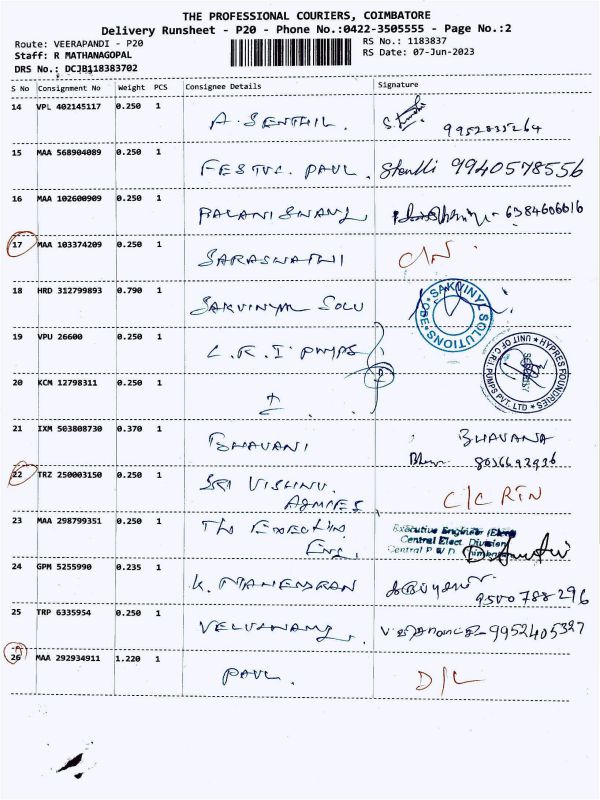 THE PROFESSIONAL COURIERS, COIMBATORE
Delivery Runsheet - P20 - Phone No.:0422-3505555 - Page No.:2
Route: VEERAPANDI - P20
RS No.: 1183837
Staff: R MATHANAGOPAL
RS Date: 07-Jun-2023
DRS No.: DCJB118383702
S No Consignment No Weight PCS Consignee Details Signature
14 VPL 402145117 0.250 1 A. SENTHIL. 9952835264
15 MAA 568904089 0.250 1 FESTUS. PAUL. 9940578556
16 MAA 102600909 0.250 1 PALANISWAMY 6384606616
17 MAA 103374209 0.250 1 SARASWATHI C/N.
18 HRD 312799893 0.790 1 SAKVINYL SOLU
SAKVINYL SOLUTIONS * CBE *
19 VPU 26600 0.250 1 C.R.I PUMPS
HYPRES FOUNDRIES * UNIT OF C.R.I. PUMPS PVT. LTD *
20 KCM 12798311 0.250 1
21 IXM 503808730 0.370 1 BHAVANI BHAVANA
8036692936
22 TRZ 250003150 0.250 1 SRI VISHNU. C/C RTN
23 MAA 298799351 0.250 1 The Executive Eng. Executive Engineer (Elec)
Central Elect Division
Central P W D
24 GPM 5255990 0.235 1 K. MAHENDRAN 9500788296
25 TRP 6335954 0.250 1 VELUSAMY. 9952405327
26 MAA 292934911 1.220 1 PAUL. D/L